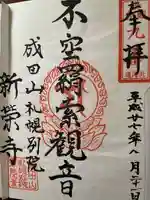 奉拝
平成廿七年八月二十一日
不空羂索観音
成田山札幌別院
新榮寺